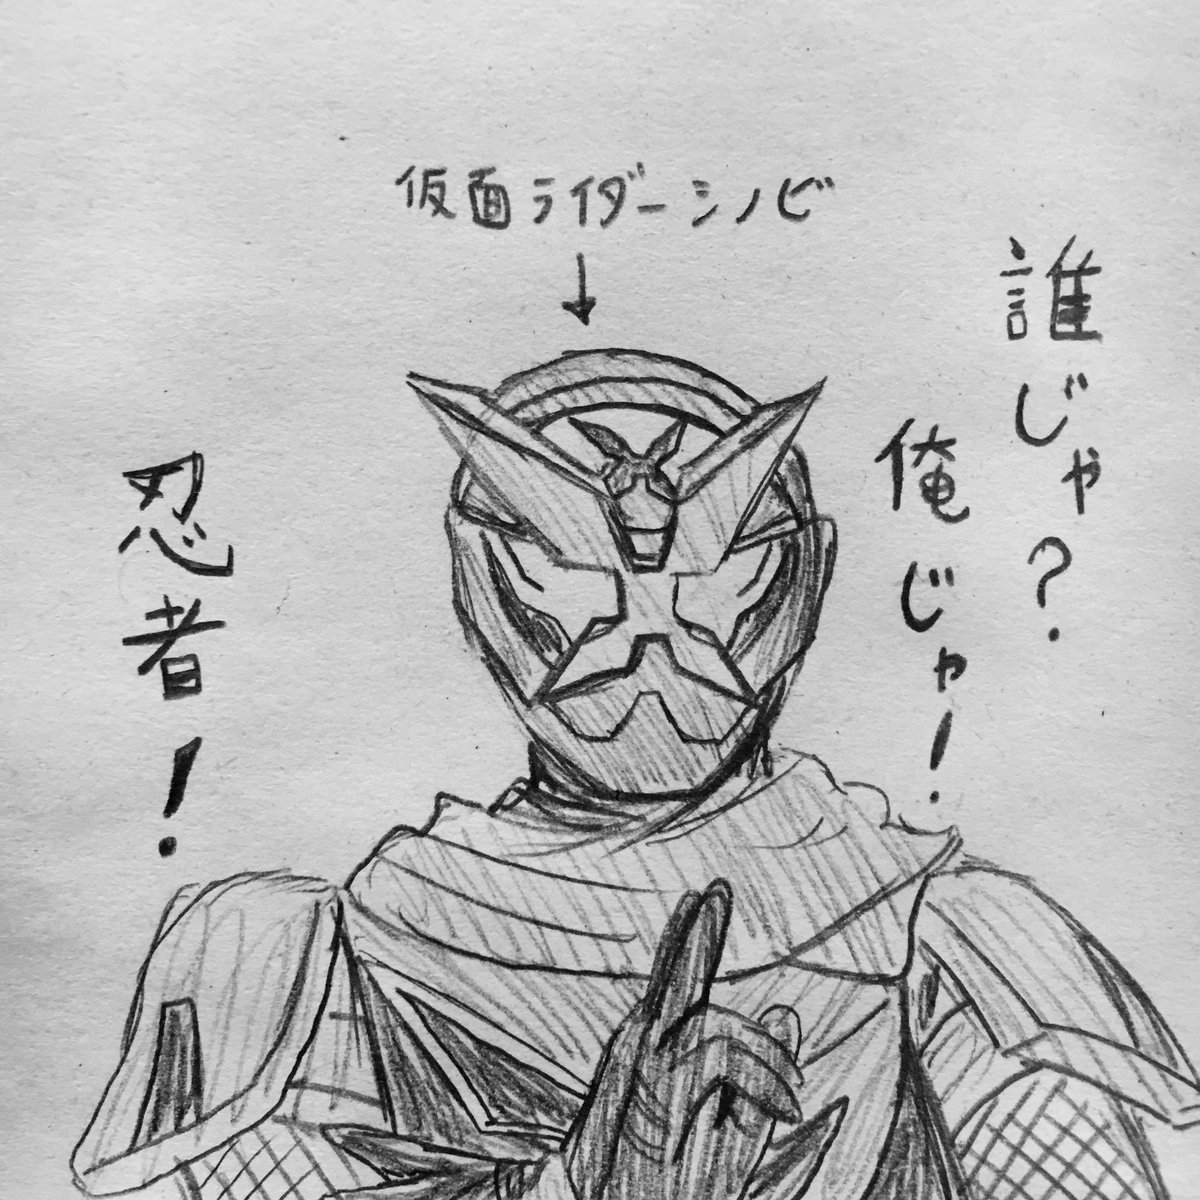 仮面ライダーシノビ
誰じゃ?
俺じゃ!
忍者!